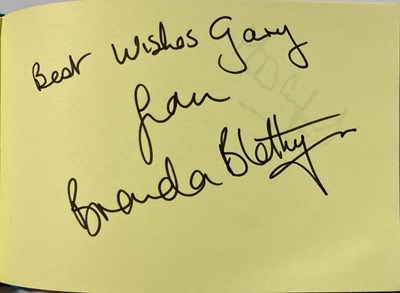 Best Wishes Gary
from
Brenda Blethyn